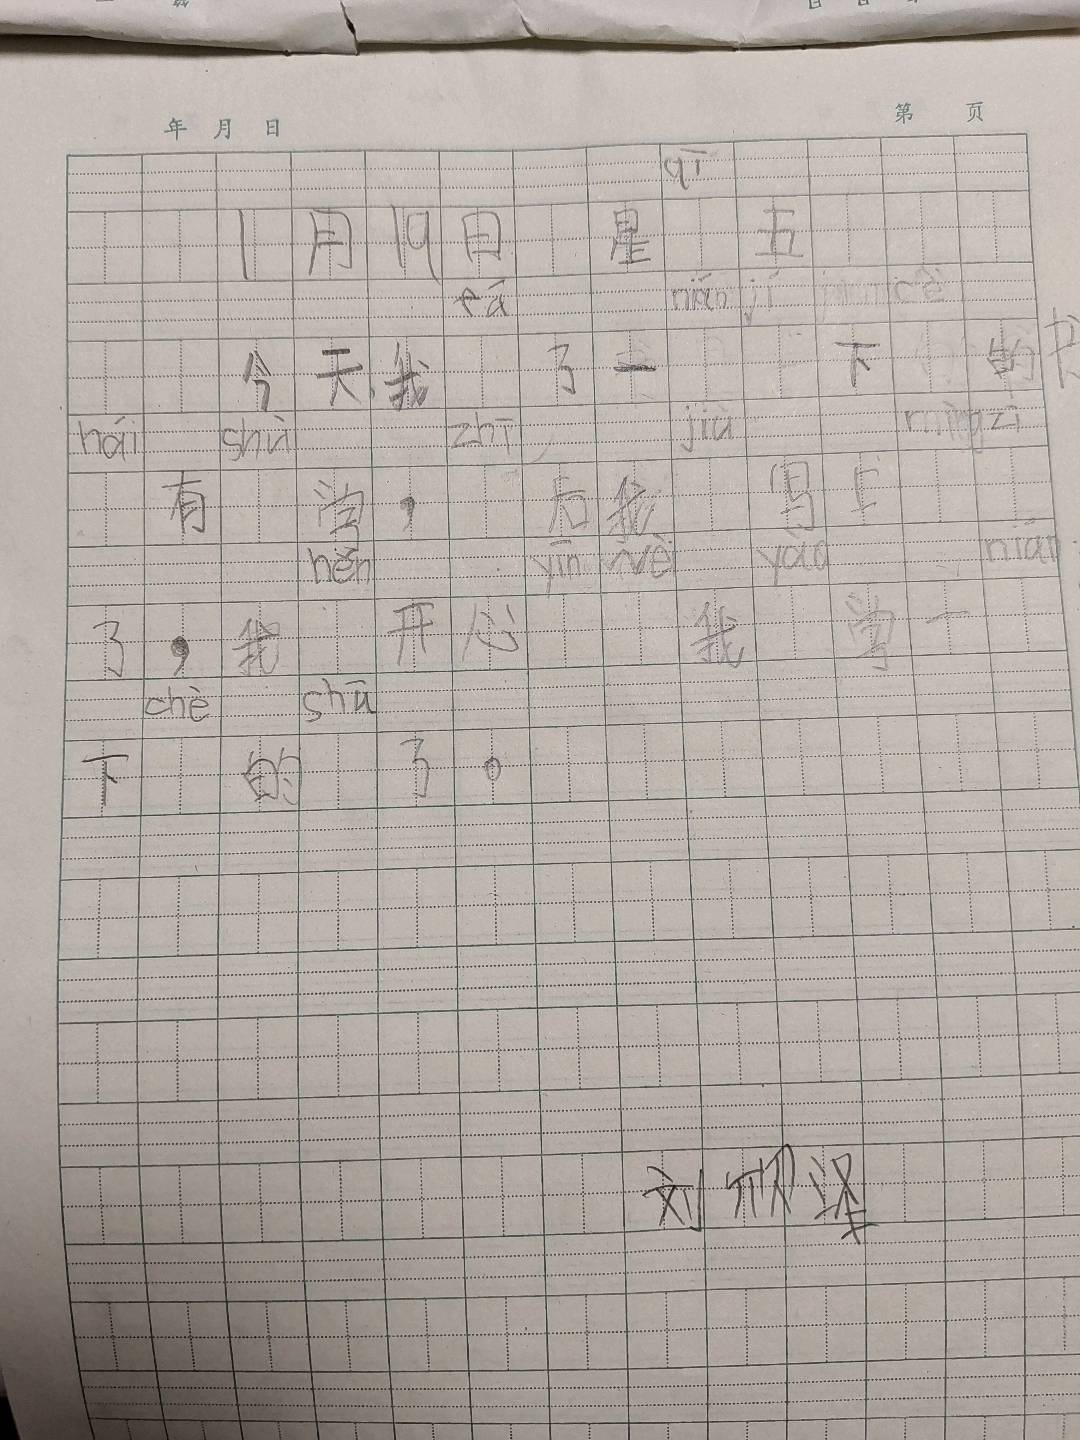 年 月 日 第 页
qī
1月19日 星 五
fā nián jí cè
今天,我 了一 下 的书
hái shù zhī jiù míng zì
有 学, 后我 写上
hěn yīn wèi yào nián
了,我 开心 我 学一
chè shū
下 的 了。
刘 泽